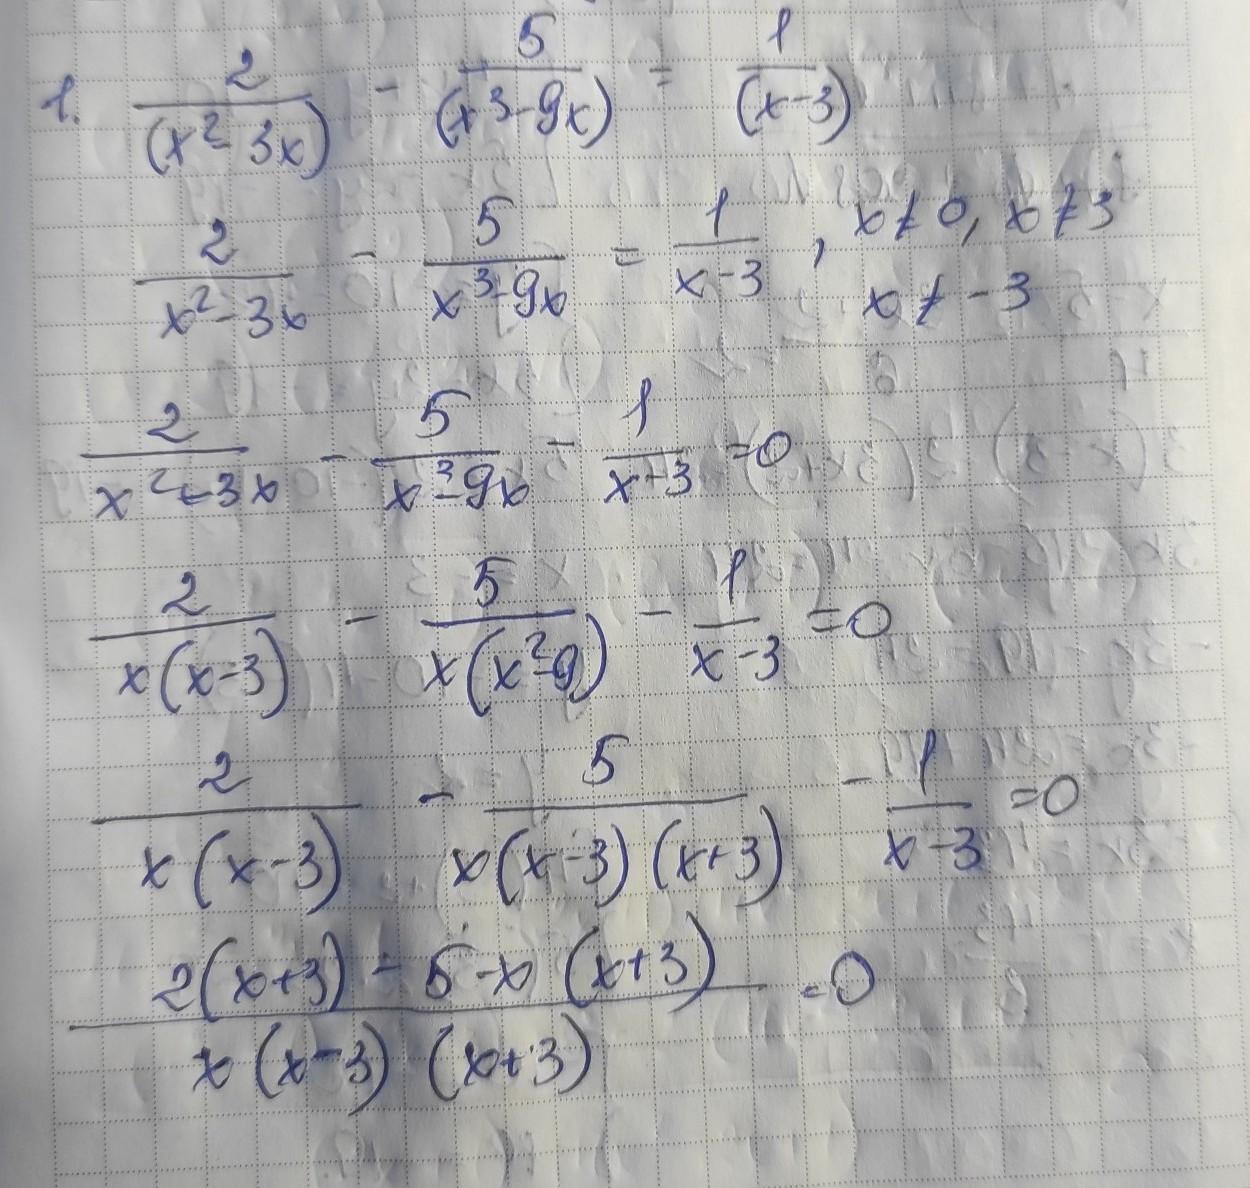 1. 2/(x²-3x) - 5/(x³-9x) = 1/(x-3)
2/x²-3x - 5/x³-9x = 1/x-3, x≠0, x≠3
x≠-3
2/x²-3x - 5/x³-9x - 1/x-3 =0
2/x(x-3) - 5/x(x²-9) - 1/x-3 =0
2/x(x-3) - 5/x(x-3)(x+3) - 1/x-3 =0
2(x+3)-5-x(x+3)/x(x-3)(x+3) =0